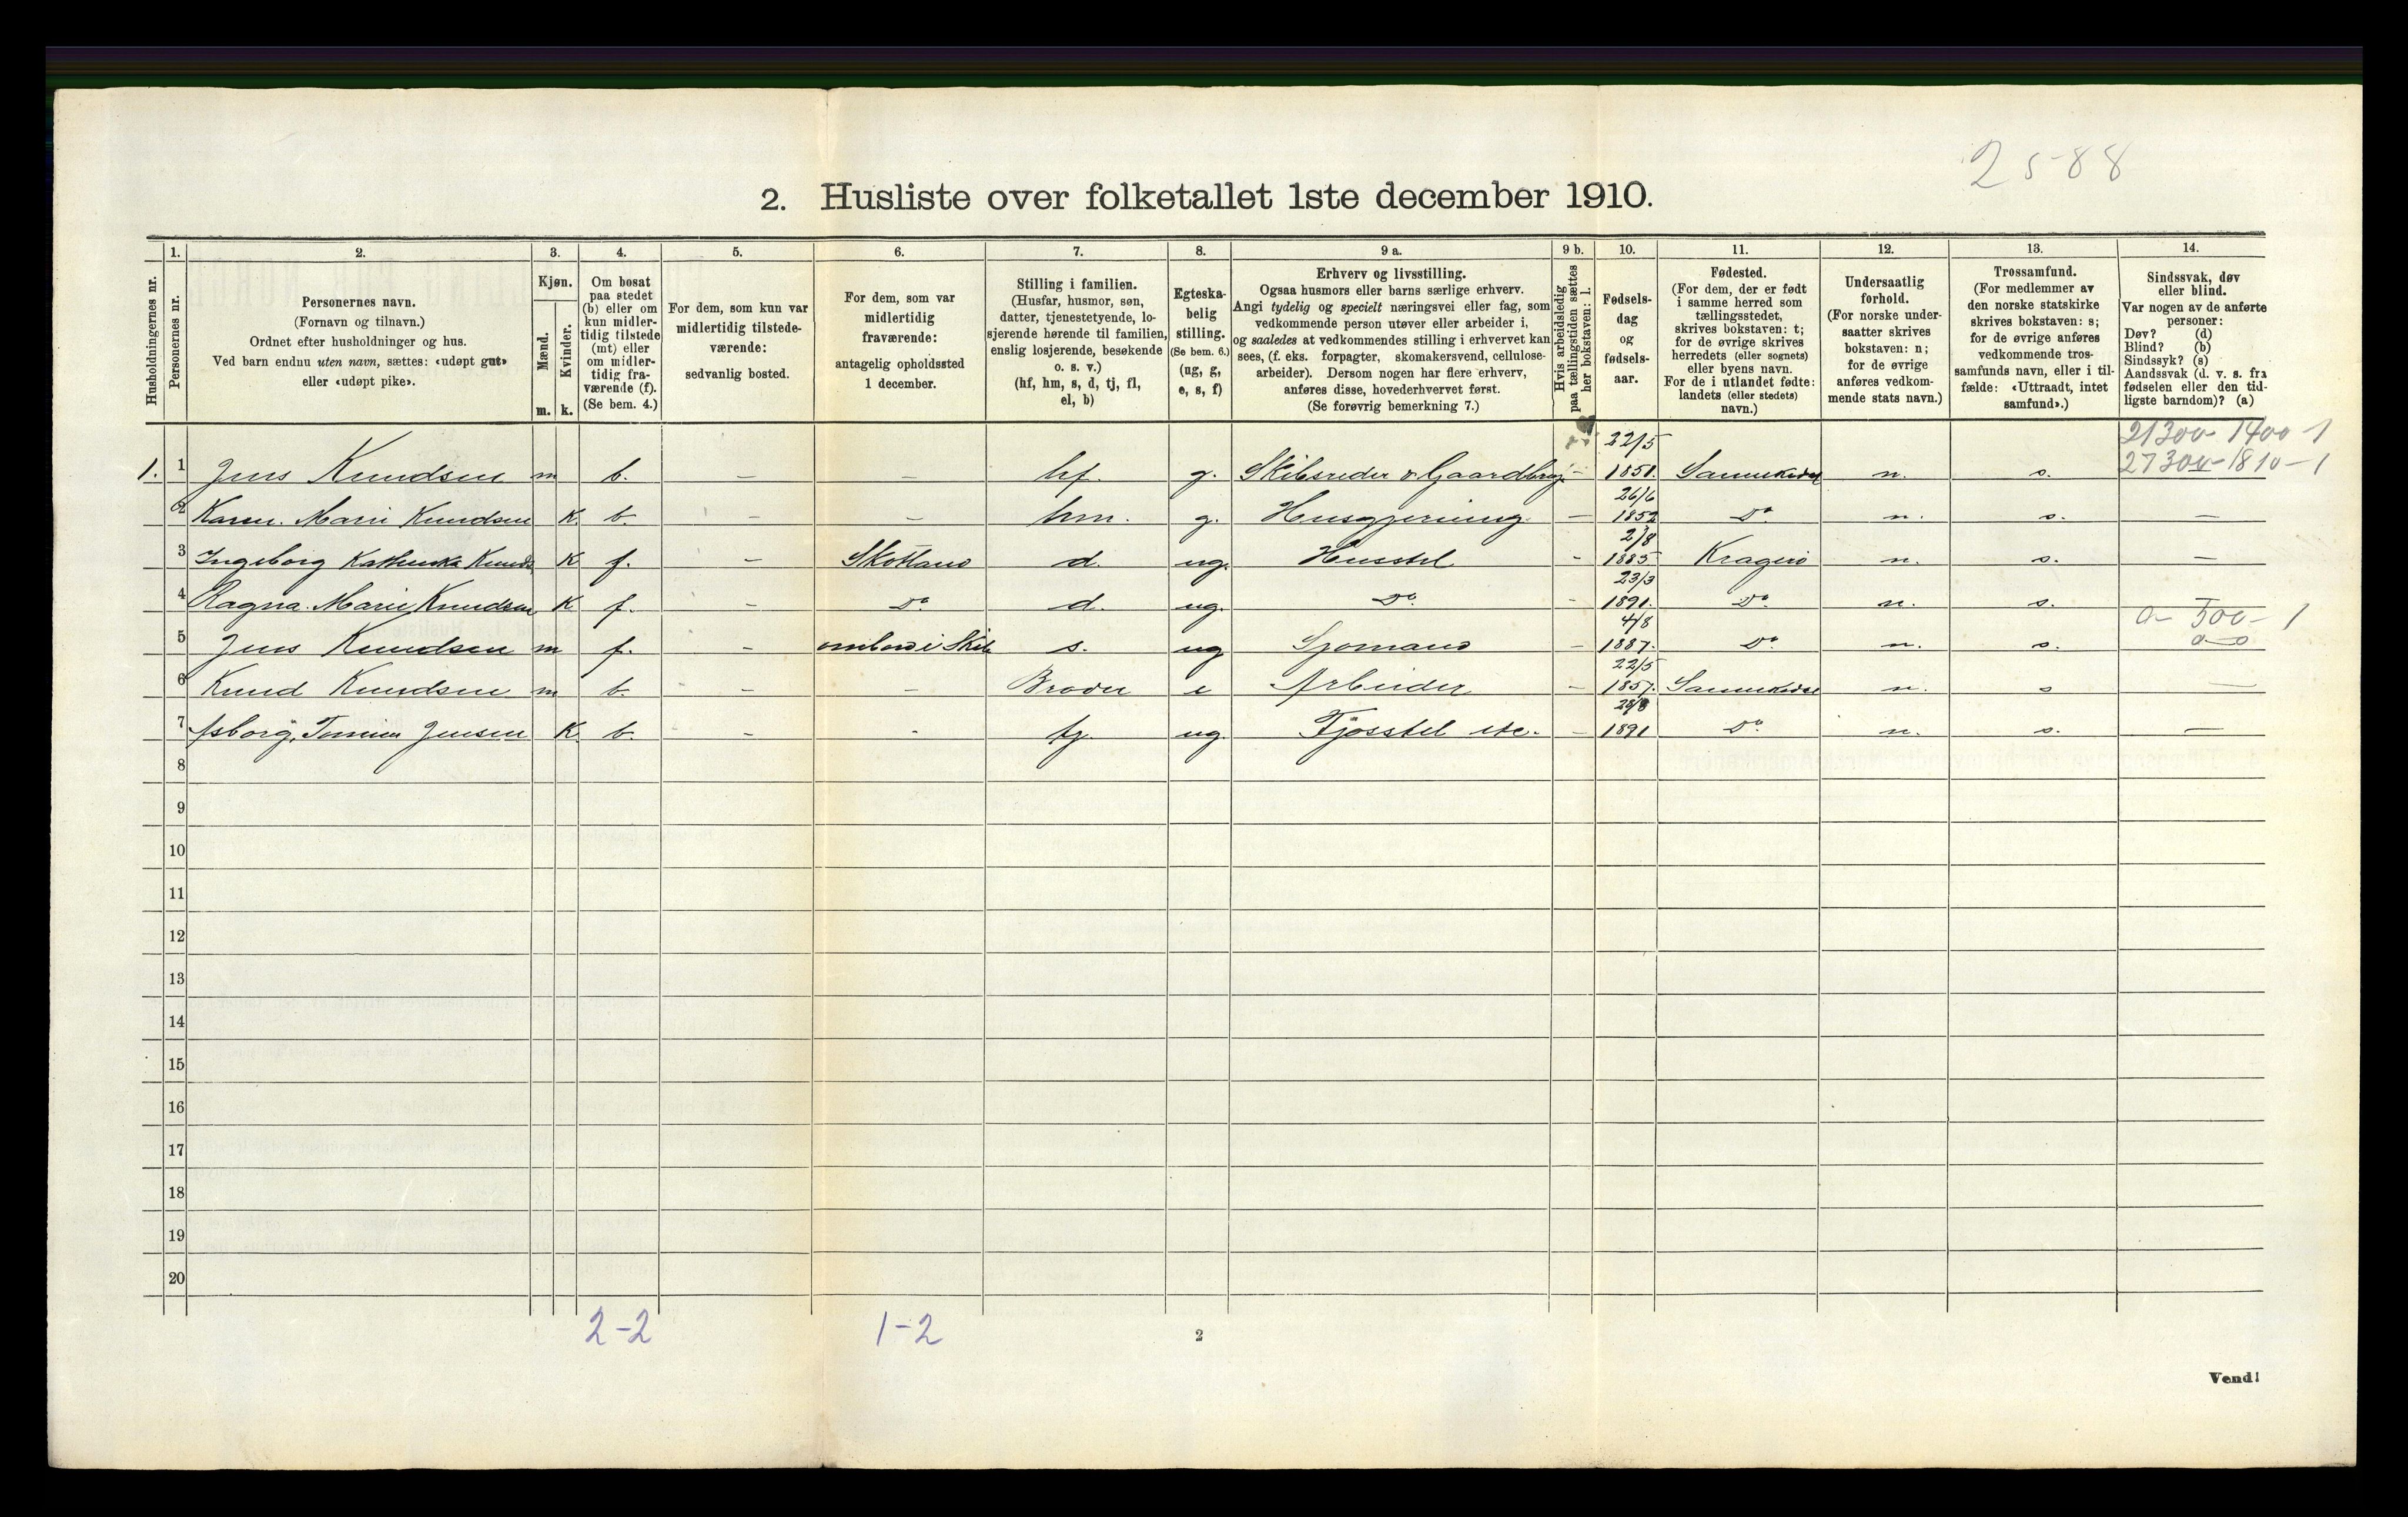 2588
2. Husliste over folketallet 1ste december 1910.
1. 2. 3. 4. 5. 6. 7. 8. 9 a. 9 b. 10. 11. 12. 13. 14.
Husholdningernes nr.
Personernes nr.
Personernes navn.
(Fornavn og tilnavn.)
Ordnet efter husholdninger og hus.
Ved barn endnu uten navn, sættes: «udøpt gut»
eller «udøpt pike».
Kjøn.
Mænd.
Kvinder.
m. k.
Om bosat
paa stedet
(b) eller om
kun midler-
tidig tilstede
(mt) eller
om midler-
tidig fra-
værende (f).
(Se bem. 4.)
For dem, som kun var
midlertidig tilstede-
værende:
sedvanlig bosted.
For dem, som var
midlertidig
fraværende:
antagelig opholdssted
1 december.
Stilling i familien.
(Husfar, husmor, søn,
datter, tjenestetyende, lo-
sjerende hørende til familien,
enslig losjerende, besøkende
o. s. v.)
(hf, hm, s, d, tj, fl,
el, b)
Egteska-
belig
stilling.
(Se bem. 6.)
(ug, g,
e, s, f)
Erhverv og livsstilling.
Ogsaa husmors eller barns særlige erhverv.
Angi tydelig og specielt næringsvei eller fag, som
vedkommende person utøver eller arbeider i,
og saaledes at vedkommendes stilling i erhvervet kan
sees, (f. eks. forpagter, skomakersvend, cellulose-
arbeider). Dersom nogen har flere erhverv,
anføres disse, hovederhvervet først.
(Se forøvrig bemerkning 7.)
Hvis arbeidsledig
paa tællingstiden sættes
her bokstaven: l.
Fødsels-
dag
og
fødsels-
aar.
Fødested.
(For dem, der er født
i samme herred som
tællingsstedet,
skrives bokstaven: t;
for de øvrige skrives
herredets (eller sognets)
eller byens navn.
For de i utlandet fødte:
landets (eller stedets)
navn.)
Undersaatlig
forhold.
(For norske under-
saatter skrives
bokstaven: n;
for de øvrige
anføres vedkom-
mende stats navn.)
Trossamfund.
(For medlemmer av
den norske statskirke
skrives bokstaven: s;
for de øvrige anføres
vedkommende tros-
samfunds navn, eller i til-
fælde: «Uttraadt, intet
samfund».)
Sindssvak, døv
eller blind.
Var nogen av de anførte
personer:
Døv? (d)
Blind? (b)
Sindssyk? (s)
Aandssvak (d. v. s. fra
fødselen eller den tid-
ligste barndom)? (a)
21300 - 1400 - 1
27300 - 1810 - 1
1. 1 Jens Knudsen m b. - - hf. g. Skibsreder & Gaardbrug. - 22/5 1851. Sannikedal n. s.
2 Karen. Marie Knudsen K b. - - hm. g. Husgjerning - 26/6 1852 Do n. s. -
3 Ingeborg Kathinka Knuds K f. - Skotland d. ug. Husstel - 2/8 1885 Kragerø n. s. -
4 Ragna. Marie Knudsen K f. - Do d. ug. Do - 23/3 1891. Do n. s.
0 - 500 - 1
5 Jens Knudsen m f. - ombord i Skib s. ug Sjømand - 4/8 1887. Do n. s. 0-0
6 Knud Knudsen m b. - - Broder e Arbeider - 22/5 1857. Sannikedal n. s -
7 Jensen K b. - - tj. ug. Fjøsstel etc. - 28/8 1891 Do n. s. -
8
9
10
11
12
13
14
15
16
17
18
19
20
2-2 1-2
2
Vend!